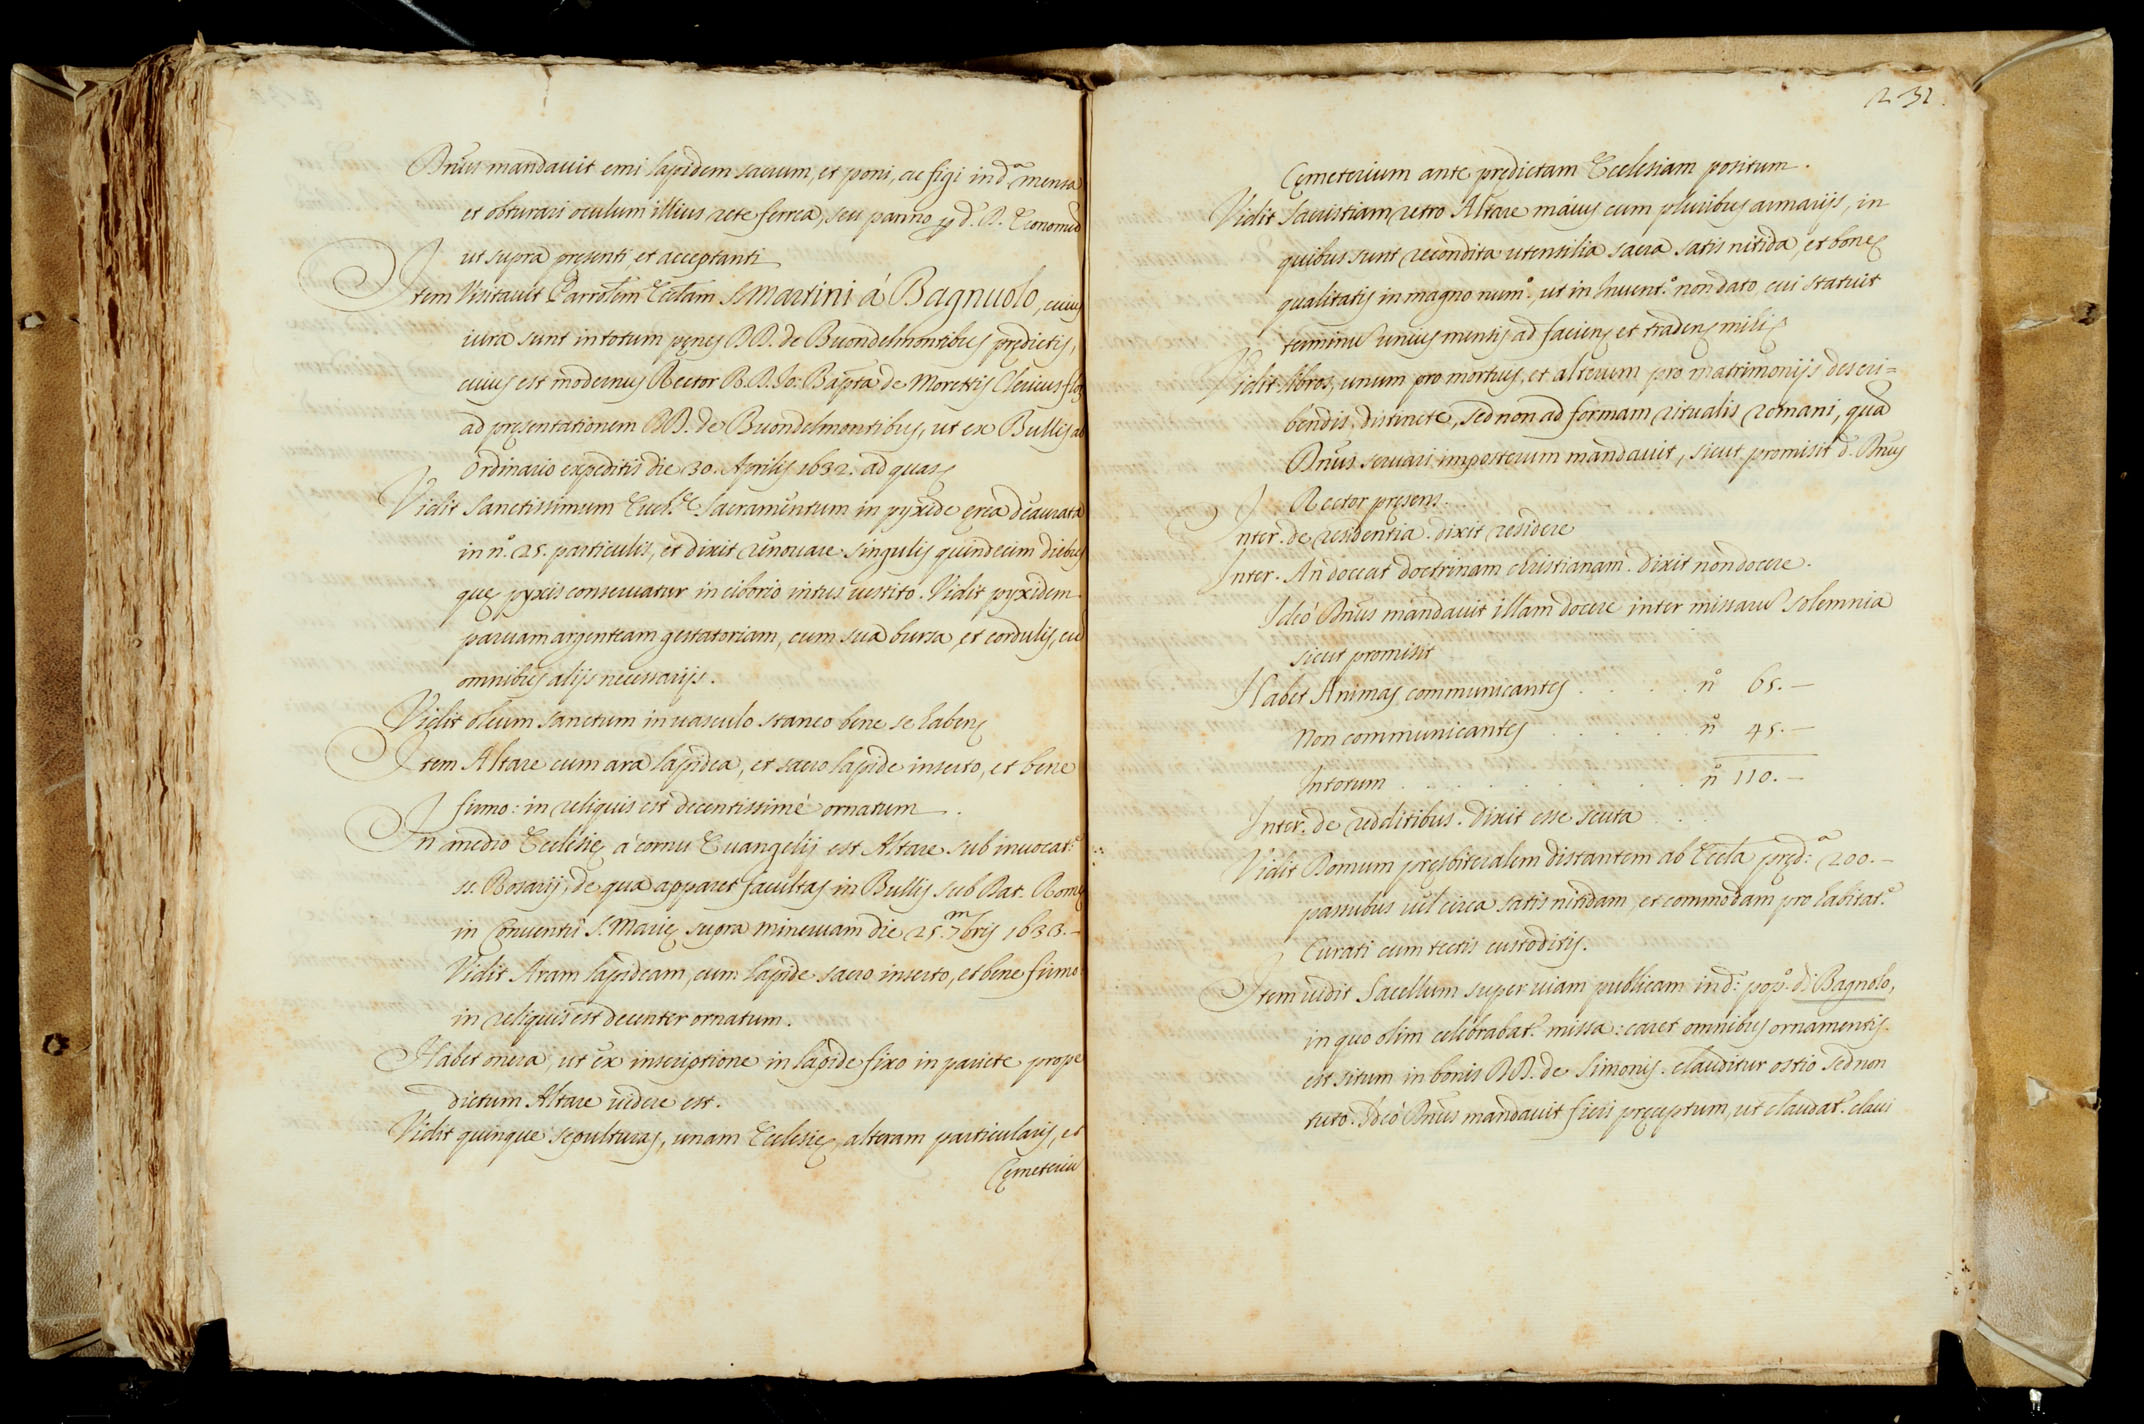 Dn̄us mandauit emi lapidem sacrum, et poni, ac figi in d.ª mensa
et obturari oculum illius rete ferrea, seu panno ꝑ d. D. Economū
ut supra presenti, et acceptanti
Item Visitauit Parrōlem Eccl̄am S. Martini à Bagnuolo, cuius
iura sunt in totum pęnes DD. de Buondelmontibus prędictis,
cuius est modernus Rector R. D. Jo: Bap̄ta de Morettis Clericus flor.
ad pręsentationem DD. de Buondelmontibus, ut ex Bullis ab
Ordinario expeditis die 30. Aprilis 1632. ad quas
Vidit Sanctissimum Euch.ę Sacramentum in pyxide ęrea deaurata
in n.º 25. particulis, et dixit renouare singulis quindecim diebus
quę pyxis conseruatur in ciborio intus uestito. Vidit pyxidem
paruam argenteam gestatoriam, cum sua bursa, et cordulis, cū
omnibus alijs necessarijs.
Vidit oleum sanctum in uasculo staneo bene se habens
Item Altare cum ara lapidea, et sacro lapide inserto, et bene
firmo: in reliquis est decentissimè ornatum.
In medio Ecclesię à cornu Euangelij est Altare sub inuocat.e
ss. Rosarij, de qua apparet facultas in Bullis sub Dat. Romę
in Conuentu S. Marię supra mineruam die 25. 7mbris 1633.-
Vidit Aram lapideam, cum lapide sacro inserto, et bene firmo:
in reliquis est decenter ornatum.
Habet onera, ut ex inscriptione in lapide fixo in pariete prope
dictum Altare uidere est.
Vidit quinque sepulturas, unam Ecclesię, alteram particularis, et
Cęmeteriū
232.
Cęmeterium ante prędictam Ecclesiam positum.
Vidit Sacristiam retro Altare maius cum pluribus armarijs, in
quibus sunt recondita utensilia sacra satis nitida, et bonę
qualitatis in magno num.º, ut in Inuent.º non dato, cui statuit
terminū unius mensis ad faciens et tradens mihi
Vidit libros, unum pro mortuis, et alterum pro matrimonijs descri=
bendis, distincte, sed non ad formam ritualis romani, quā
Dn̄us seruari imposterum mandauit, sicut promisit d. Dn̄us
Rector pręsens.
Inter. de residentia. dixit residere
Inter. An doceat doctrinam christianam. dixit non docere.
Ideò Dn̄us mandauit illam docere inter missarū solemnia
sicut promisit
Habet Animas communicantes . . . . n.º 65.-
Non communicantes . . . . . n.º 45.-
In totum . . . . . . . . n.º 110.-
Inter. de redditibus. dixit esse scuta . . .
Vidit Domum pręsbiteralem distantem ab Eccl̄a pręd.ª 200.-
passubus uel circa satis nitidam, et commodam pro habitat.e
Curati cum tectis custoditis.
Item uidit Sacellum super uiam publicam in d.º pop.º di Bagnolo,
in quo olim celebrabat.r missa: caret omnibus ornamentis.
est situm in bonis DD. de Simonis. clauditur ostio sed non
tuto. Ideò Dn̄us mandauit fieri pręceptum, ut claudat.r claui